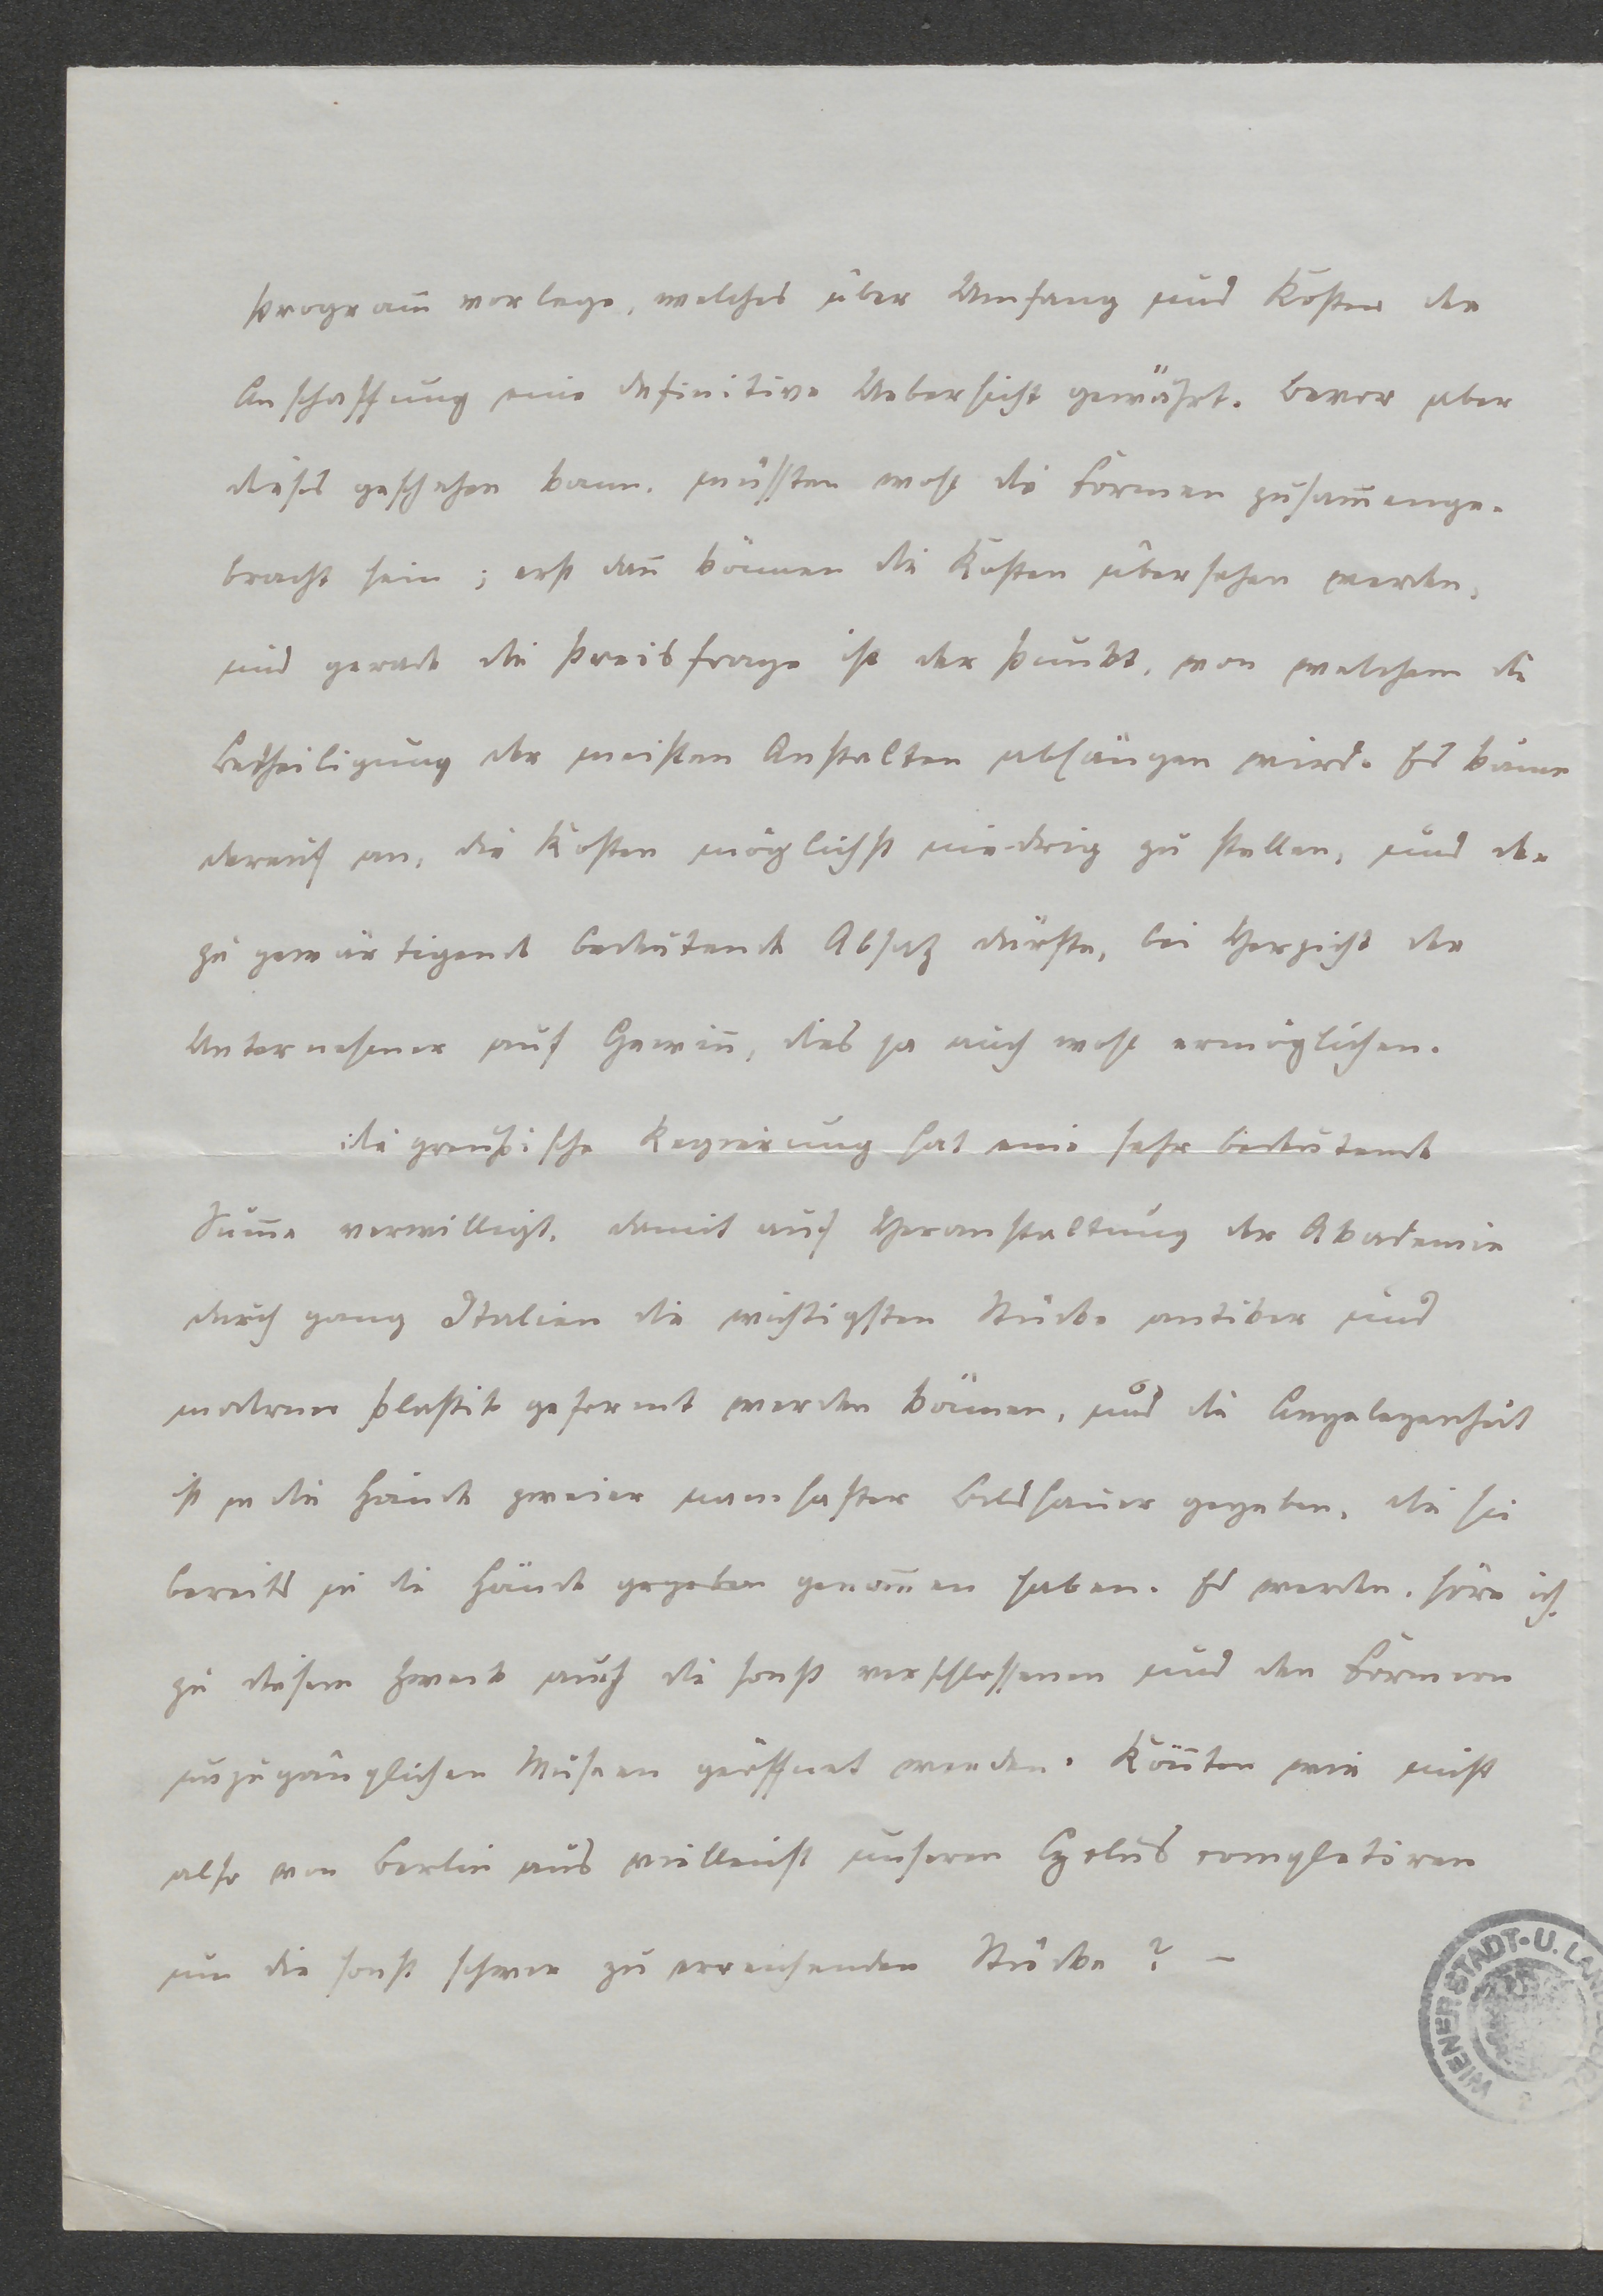 Programm̅ vorlege, welches über Umfang und Kosten der
Anschaffung eine definitive Uebersicht gewährt. Bevor aber
dieses geschehen kann, müssten wohl die Formen zusam̅enge-
bracht sein; erst dan̅ können die Kosten übersehen werden,
und gerade die Preisfrage ist der Punkt, von welchem die
Betheiligung der meisten Anstalten abhängen wird. Es käme
darauf an, die Kosten möglichst niedrig zu stellen, und der
zu gewärtigende bedeutende Absatz dürfte, bei Verzicht der
Unternehmer auf Gewin̅, dies ja auch wohl ermöglichen.
Die preußische Regierung hat eine sehr bedeutende
Sum̅e verwilligt, damit auf Veranstaltung der Akademie
durch ganz Italien die wichtigsten Stücke antiker und
moderner Plastik geformt werden können, und die Angelegenheit
ist in die Hände zweier namhafter Bildhauer gegeben, die sie
bereits in die Hände gegeben genom̅en haben. Es werden, höre ich,
zu diesem Zweck auch die sonst verschlossenen und den Formern
unzugänglichen Museen geöffnet werden. Kön̅ten wir nicht
also von Berlin aus vielleicht unseren Cyclus completiren
um die sonst schwer zu erreichenden Stücke? –
WIENER STADT-U.